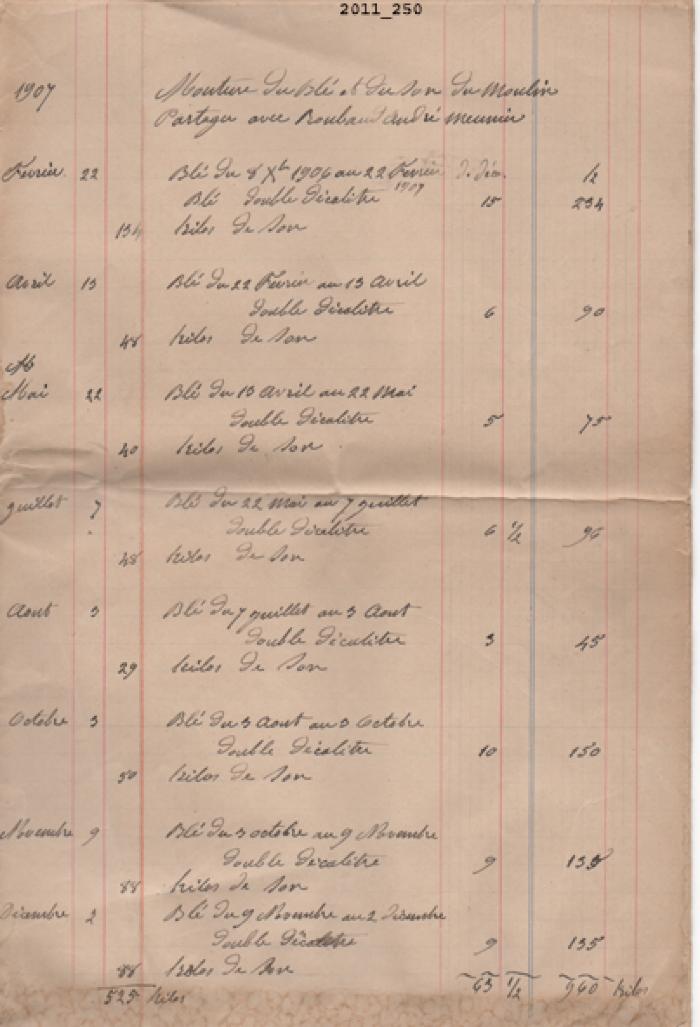 2011_250
1907 Mouture du Blé et du Son du Moulin
Partager avec Roubaud André meunier
Février 22 Blé du 8 Xbre 1906 au 22 Février 1907 d. déca. 1/2
Blé double décalitre 15 234
134 kilos de son
Avril 13 Blé du 22 Février au 13 Avril
double décalitre 6 90
48 kilos de son
M
Mai 22 Blé du 13 Avril au 22 Mai
double décalitre 5 75
40 kilos de son
guillet 7 Blé du 22 Mai au 7 guillet
double décalitre 6 1/2 96
48 kilos de son
Aout 3 Blé du 7 guillet au 3 Aout
double décalitre 3 45
29 kilos de son
Octobre 3 Blé du 3 Aout au 3 Octobre
double décalitre 10 150
50 kilos de son
Novembre 9 Blé du 3 octobre au 9 Novembre
double décalitre 9 135
88 kilos de son
Décembre 2 Blé du 9 Novembre au 2 décembre
double décalitre 9 135
88 kilos de son
525 kilos 63 1/2 960 kilos